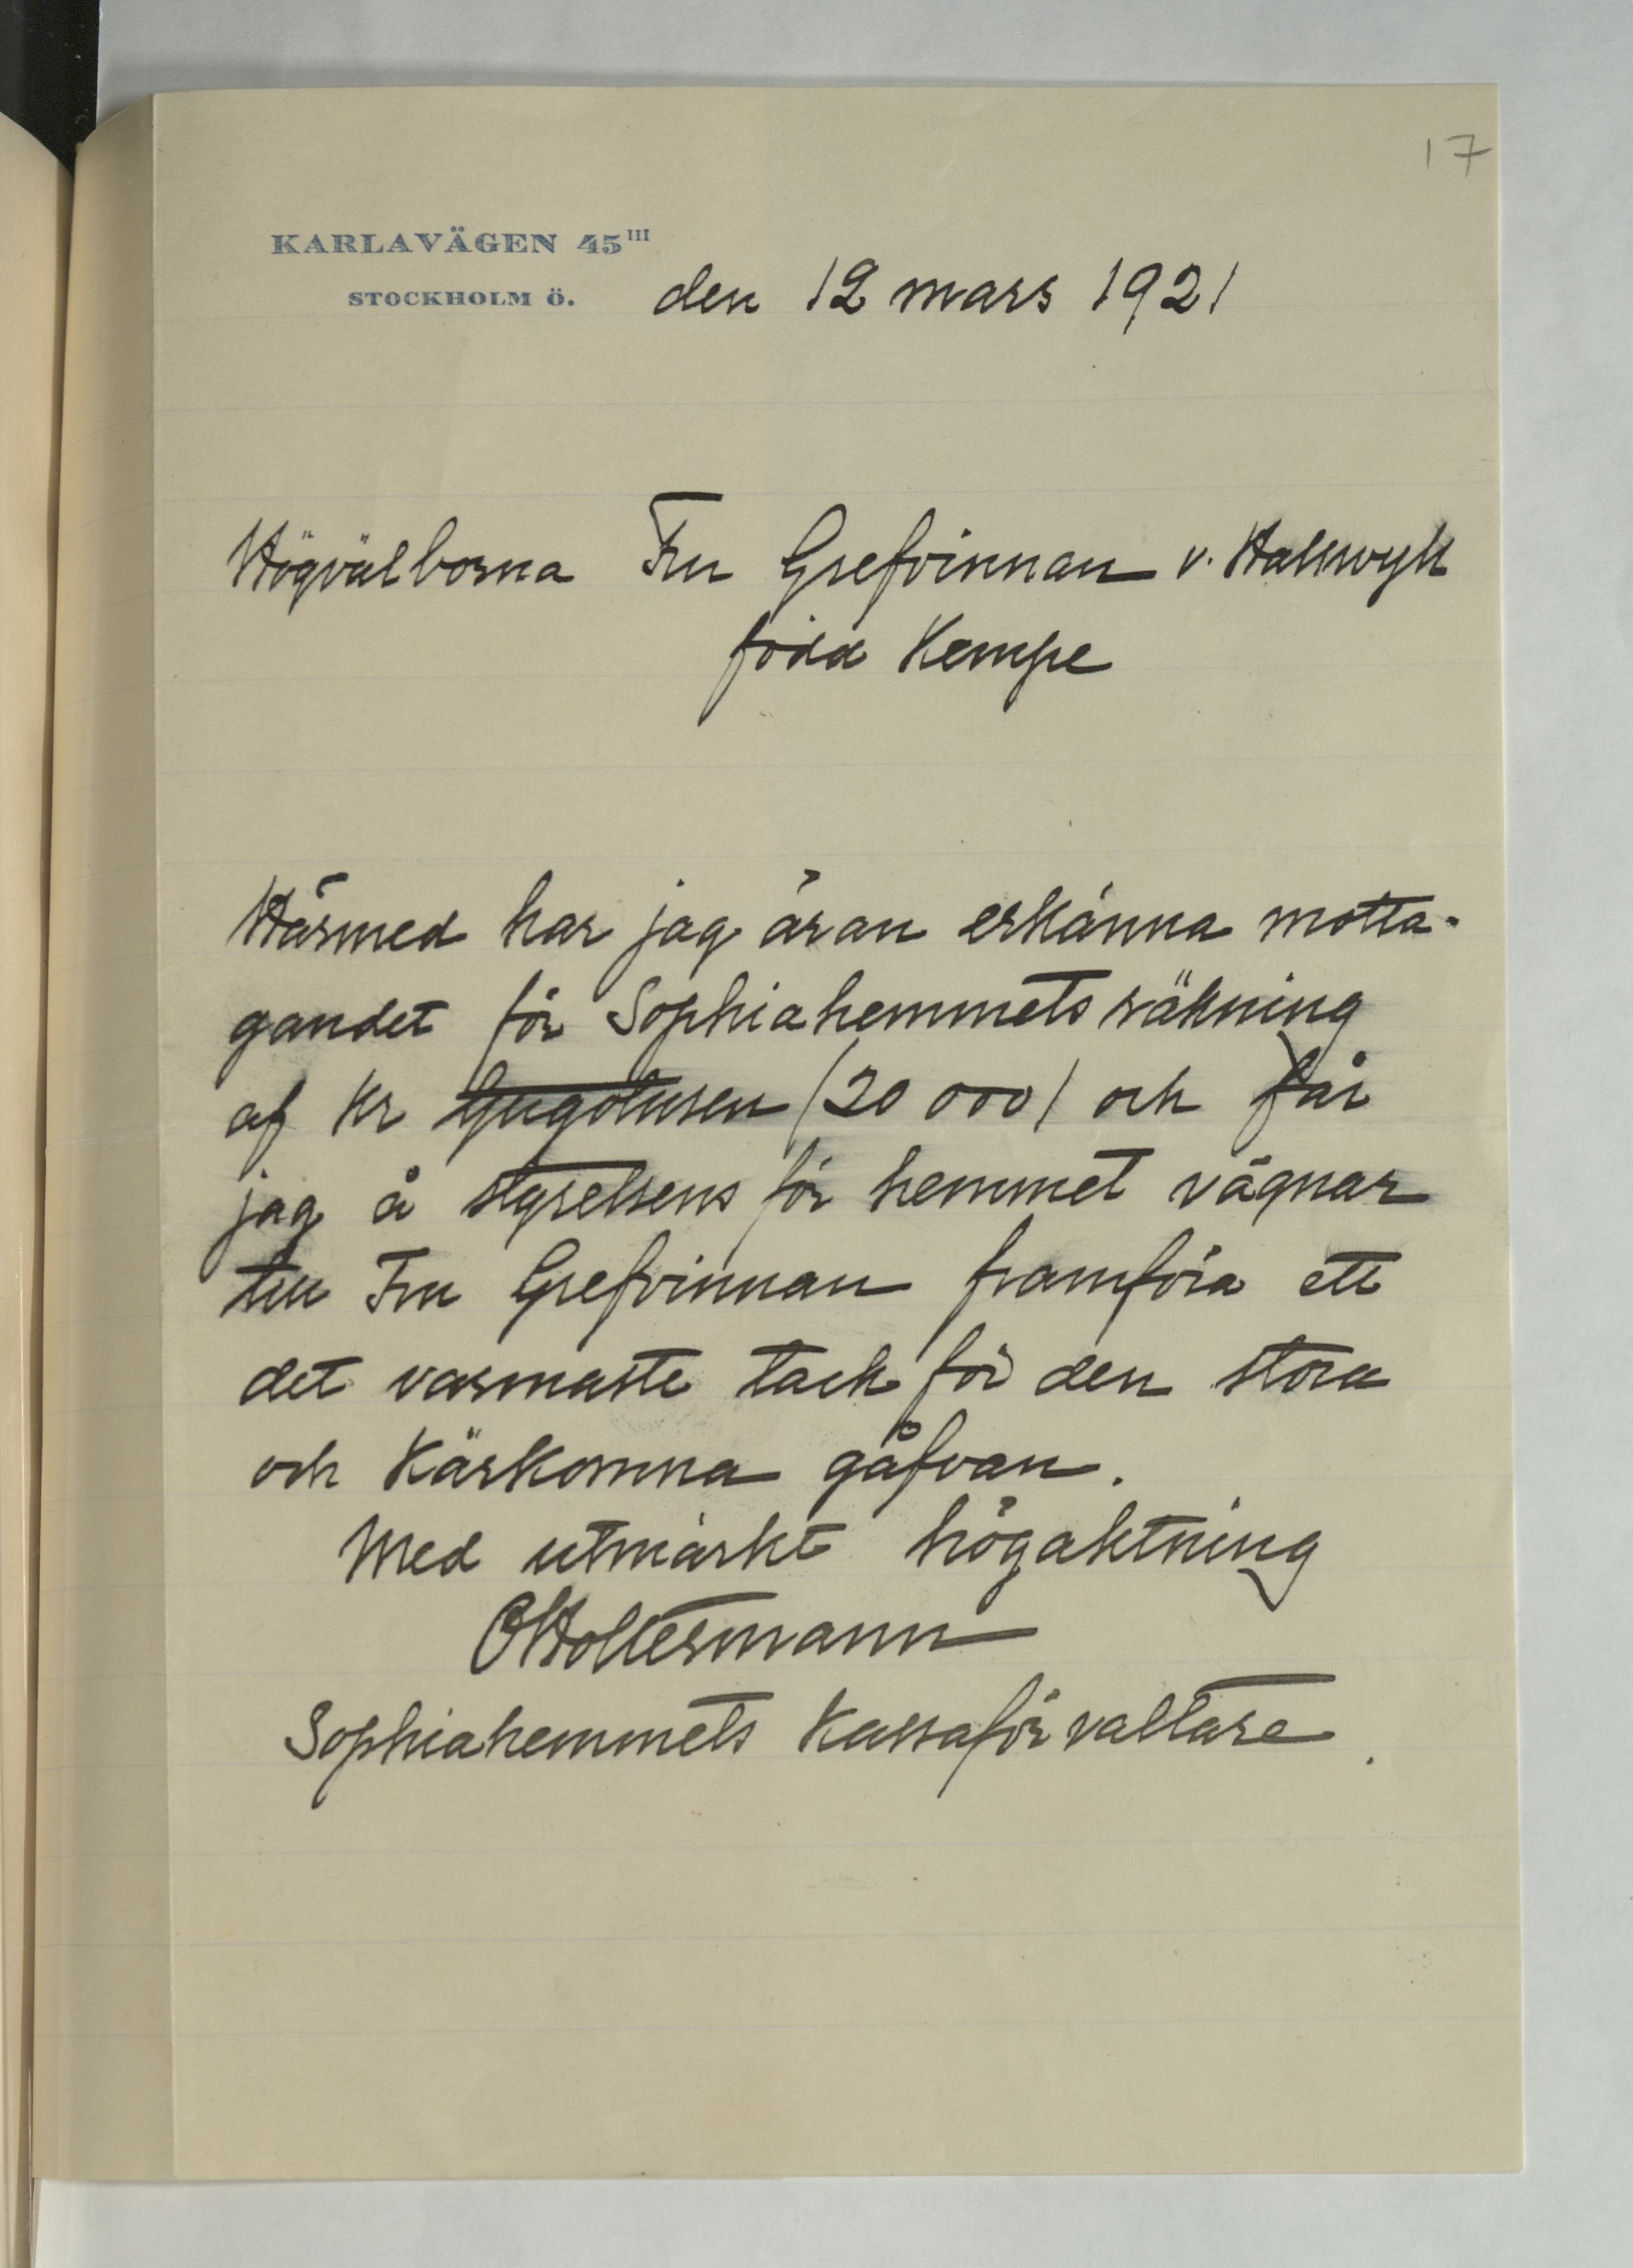 17
KARLAVÄGEN 45III
STOCKHOLM Ö.
den 12 mars 1921
Högvälborna Fru Grefvinnan v. Hallwyl
född Kempe
Härmed har jag äran erkänna motta-
gandet för Sophiahemmets räkning
af Kr Tjugotusen /20 000/ och får
jag å styrelsens för hemmet vägnar
till Fru Grefvinnan framföra ett
det varmaste tack för den stora
och kärkomna gåfvan.
Med utmärkt högaktning
OHoltermann
Sophiahemmets Kassaförvaltare.